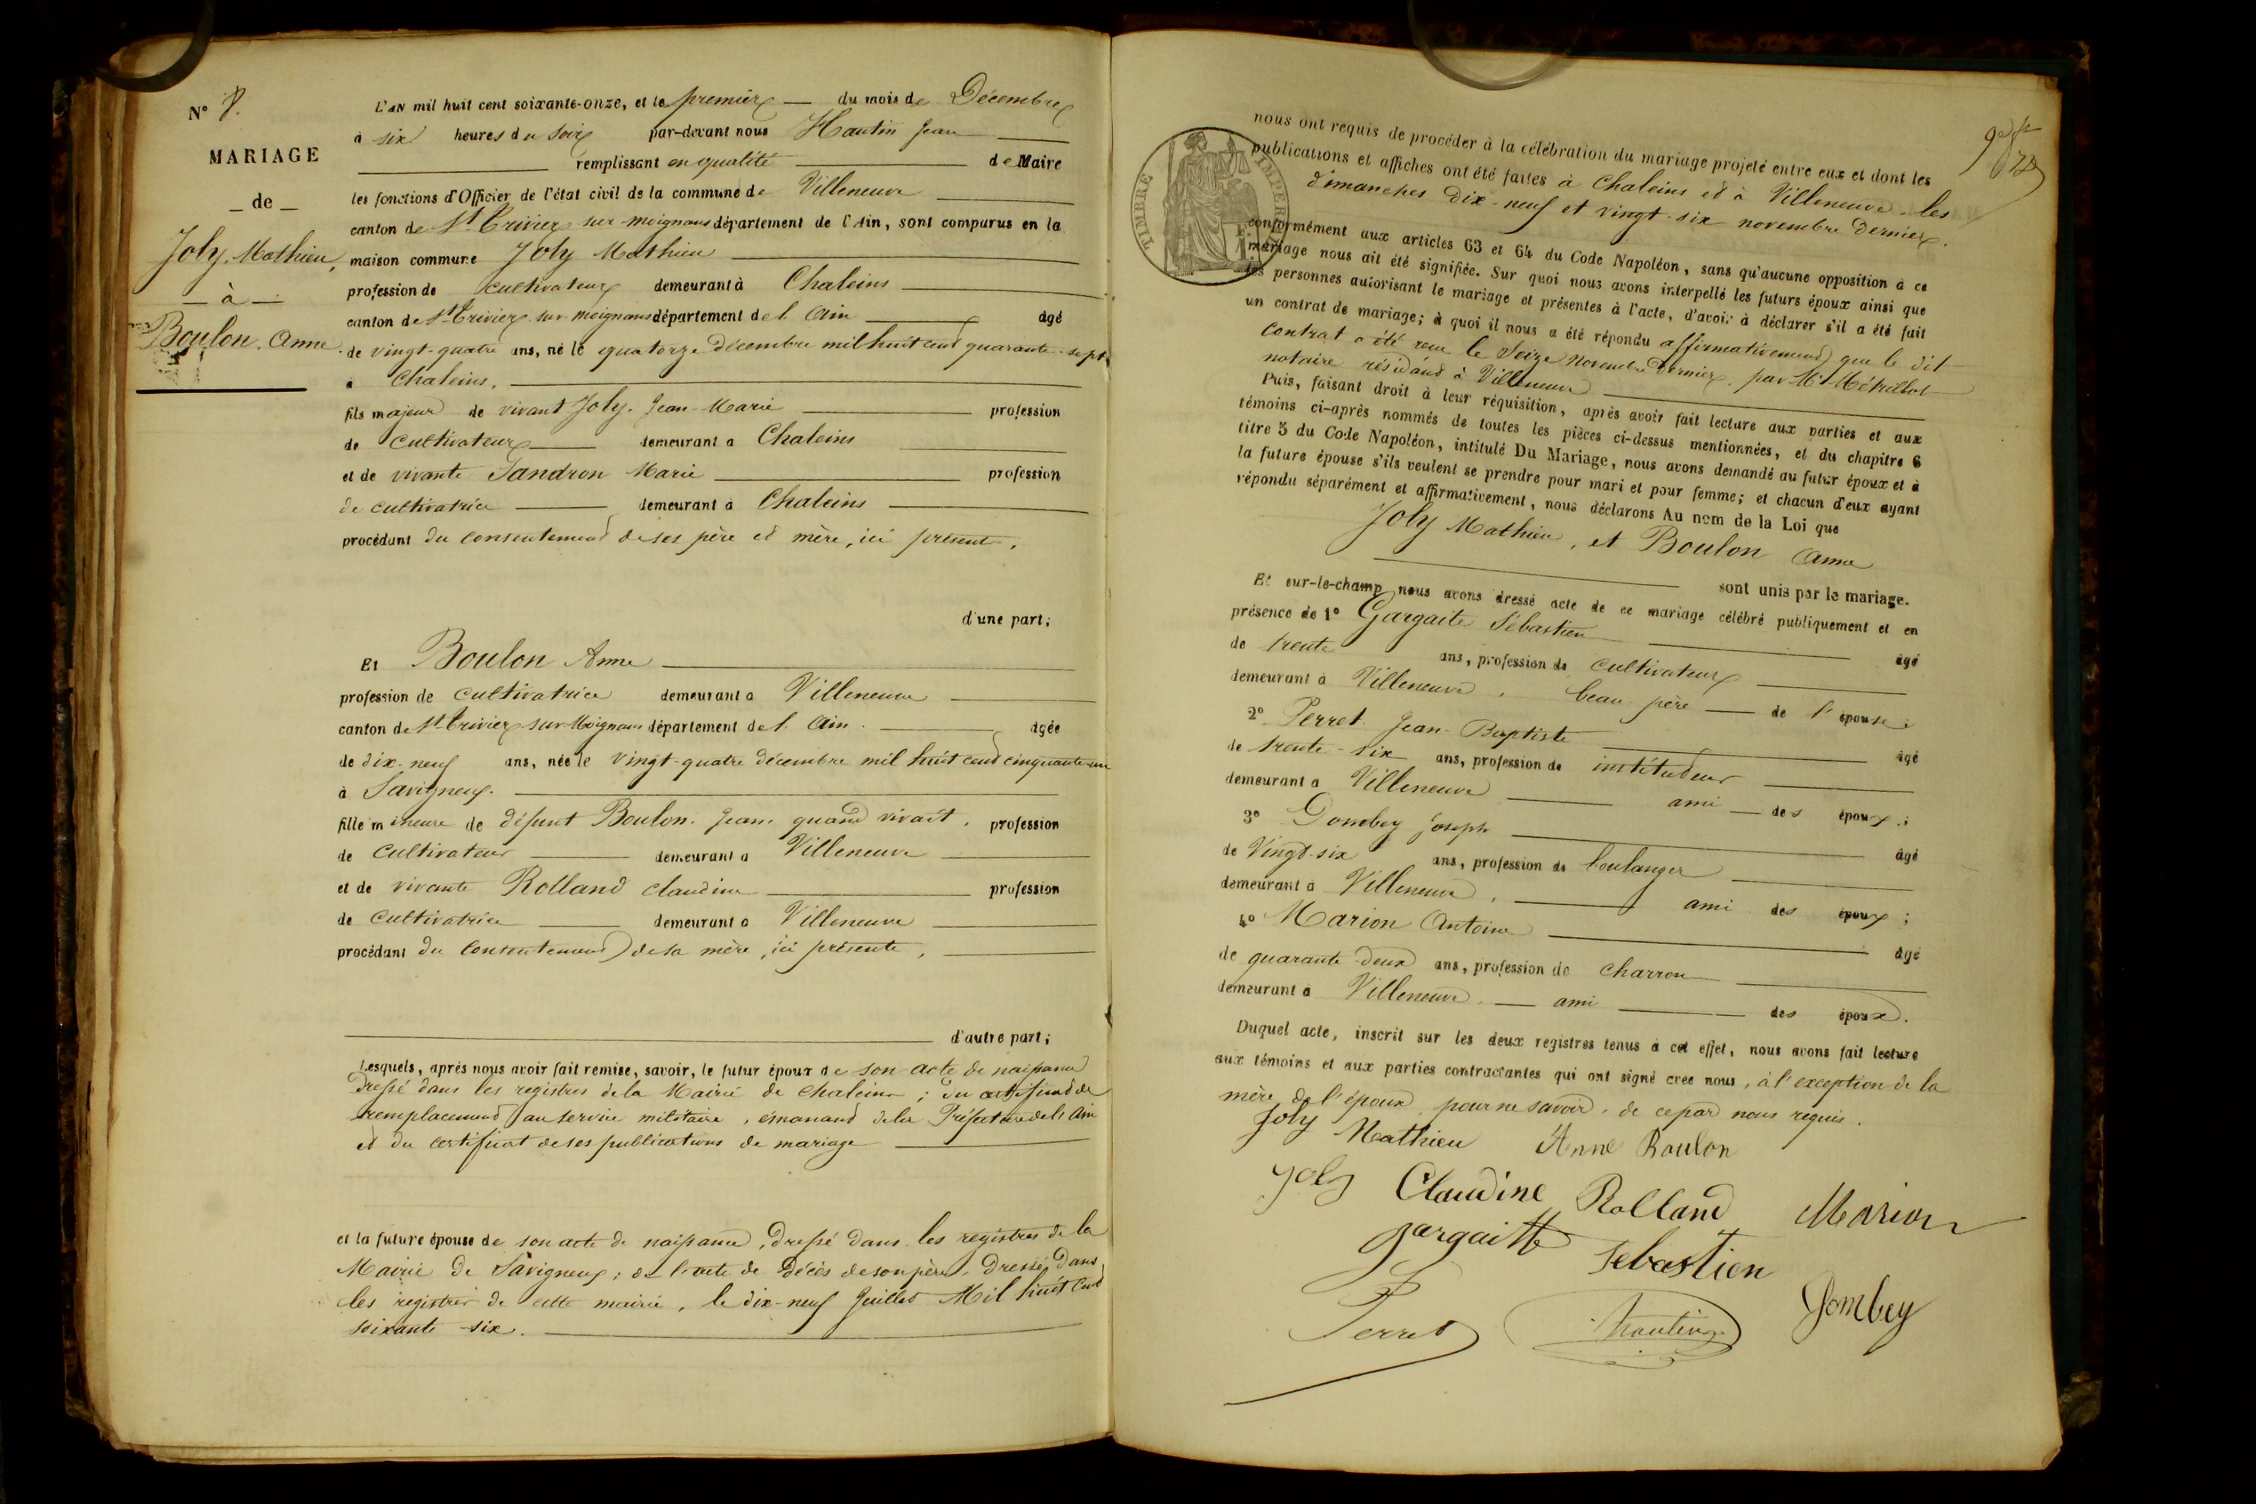 N° 8.
MARIAGE
_ de _
Joly. Mathieu,
_ à _
Boulon. Anne.
L'AN mil huit cent soixante-onze, et le premier — du mois de Décembre
à six heures du soir par-devant nous Hautin Jean
remplissant en qualité de Maire
les fonctions d'Officier de l'état civil de la commune de Villeneuve
canton de St Trivier sur-moignans département de l'Ain, sont comparus en la
maison commune Joly Mathieu
profession de cultivateur demeurant à Chaleins
canton de St Trivier sur moignans département de l'Ain âgé
de vingt-quatre ans, né le quatorze Décembre mil huit cent quarante-sept
à Chaleins.
fils majeur de vivant Joly. Jean-Marie profession
de cultivateur demeurant à Chaleins
et de vivante Sandron Marie profession
de cultivatrice demeurant à Chaleins
procédant du consentement de ses père et mère, ici présents.
d'une part;
Et Boulon Anne
profession de cultivatrice demeurant à Villeneuve
canton de St Trivier-sur-Moignans département de l'Ain. âgée
de dix-neuf ans, née le vingt-quatre décembre mil huit cent cinquante-un
à Savigneux.
fille mineure de défunt Boulon. Jean. quand vivait. profession
de cultivateur demeurant à Villeneuve
et de vivante Rolland Claudine profession
de cultivatrice demeurant à Villeneuve
procédant du consentement de sa mère, ici présente,
d'autre part;
Lesquels, après nous avoir fait remise, savoir, le futur époux de son acte de naissance
dressé dans les registres de la Mairie de Chaleins; du certificat de
remplacement au service militaire, émanant de la Préfecture de l'Ain
et du certificat de ses publications de mariage
et la future épouse de son acte de naissance, dressé dans les registres de la
Mairie de Savigneux; de l'acte de décès de son père, dressé dans
les registres de cette mairie, le dix-neuf Juillet Mil huit cent
soixante-six.
TIMBRE IMPER
nous ont requis de procéder à la célébration du mariage projeté entre eux et dont les
publications et affiches ont été faites à Chaleins et à Villeneuve les
dimanches Dix-neuf et vingt-six novembre dernier.
conformément aux articles 63 et 64 du Code Napoléon, sans qu'aucune opposition à ce
mariage nous ait été signifiée. Sur quoi nous avons interpellé les futurs époux ainsi que
les personnes autorisant le mariage et présentes à l'acte, d'avoir à déclarer s'il a été fait
un contrat de mariage; à quoi il nous a été répondu affirmativement que le dit
contrat a été reçu le Seize Novembre dernier, par Me Métrillot
notaire résidant à Villeneuve
Puis, faisant droit à leur réquisition, après avoir fait lecture aux parties et aux
témoins ci-après nommés de toutes les pièces ci-dessus mentionnées, et du chapitre 6
titre 5 du Code Napoléon, intitulé Du Mariage, nous avons demandé au futur époux et à
la future épouse s'ils veulent se prendre pour mari et pour femme; et chacun d'eux ayant
répondu séparément et affirmativement, nous déclarons Au nom de la Loi que
Joly Mathieu, et Boulon Anne
sont unis par le mariage.
Et sur-le-champ nous avons dressé acte de ce mariage célébré publiquement et en
présence de 1° Gargaite Sébastien
âgé
de trente ans, profession de cultivateur
demeurant à Villeneuve, beau père de l'épouse;
2° Perret Jean-Baptiste
âgé
de trente-six ans, profession de instituteur
demeurant à Villeneuve ami des époux;
3° Gombey Joseph
âgé
de vingt-six ans, profession de boulanger
demeurant à Villeneuve, ami des époux;
4° Marion Antoine
âgé
de quarante-deux ans, profession de charron
demeurant à Villeneuve. — ami des époux.
Duquel acte, inscrit sur les deux registres tenus à cet effet, nous avons fait lecture
aux témoins et aux parties contractantes qui ont signé avec nous, à l'exception de la
mère de l'époux, pour ne savoir, de ce par nous requis.
Joly Mathieu Anne Boulon
Joly Claudine Rolland Marion
gargaitte Sebastien
Perret Hautin Gombey